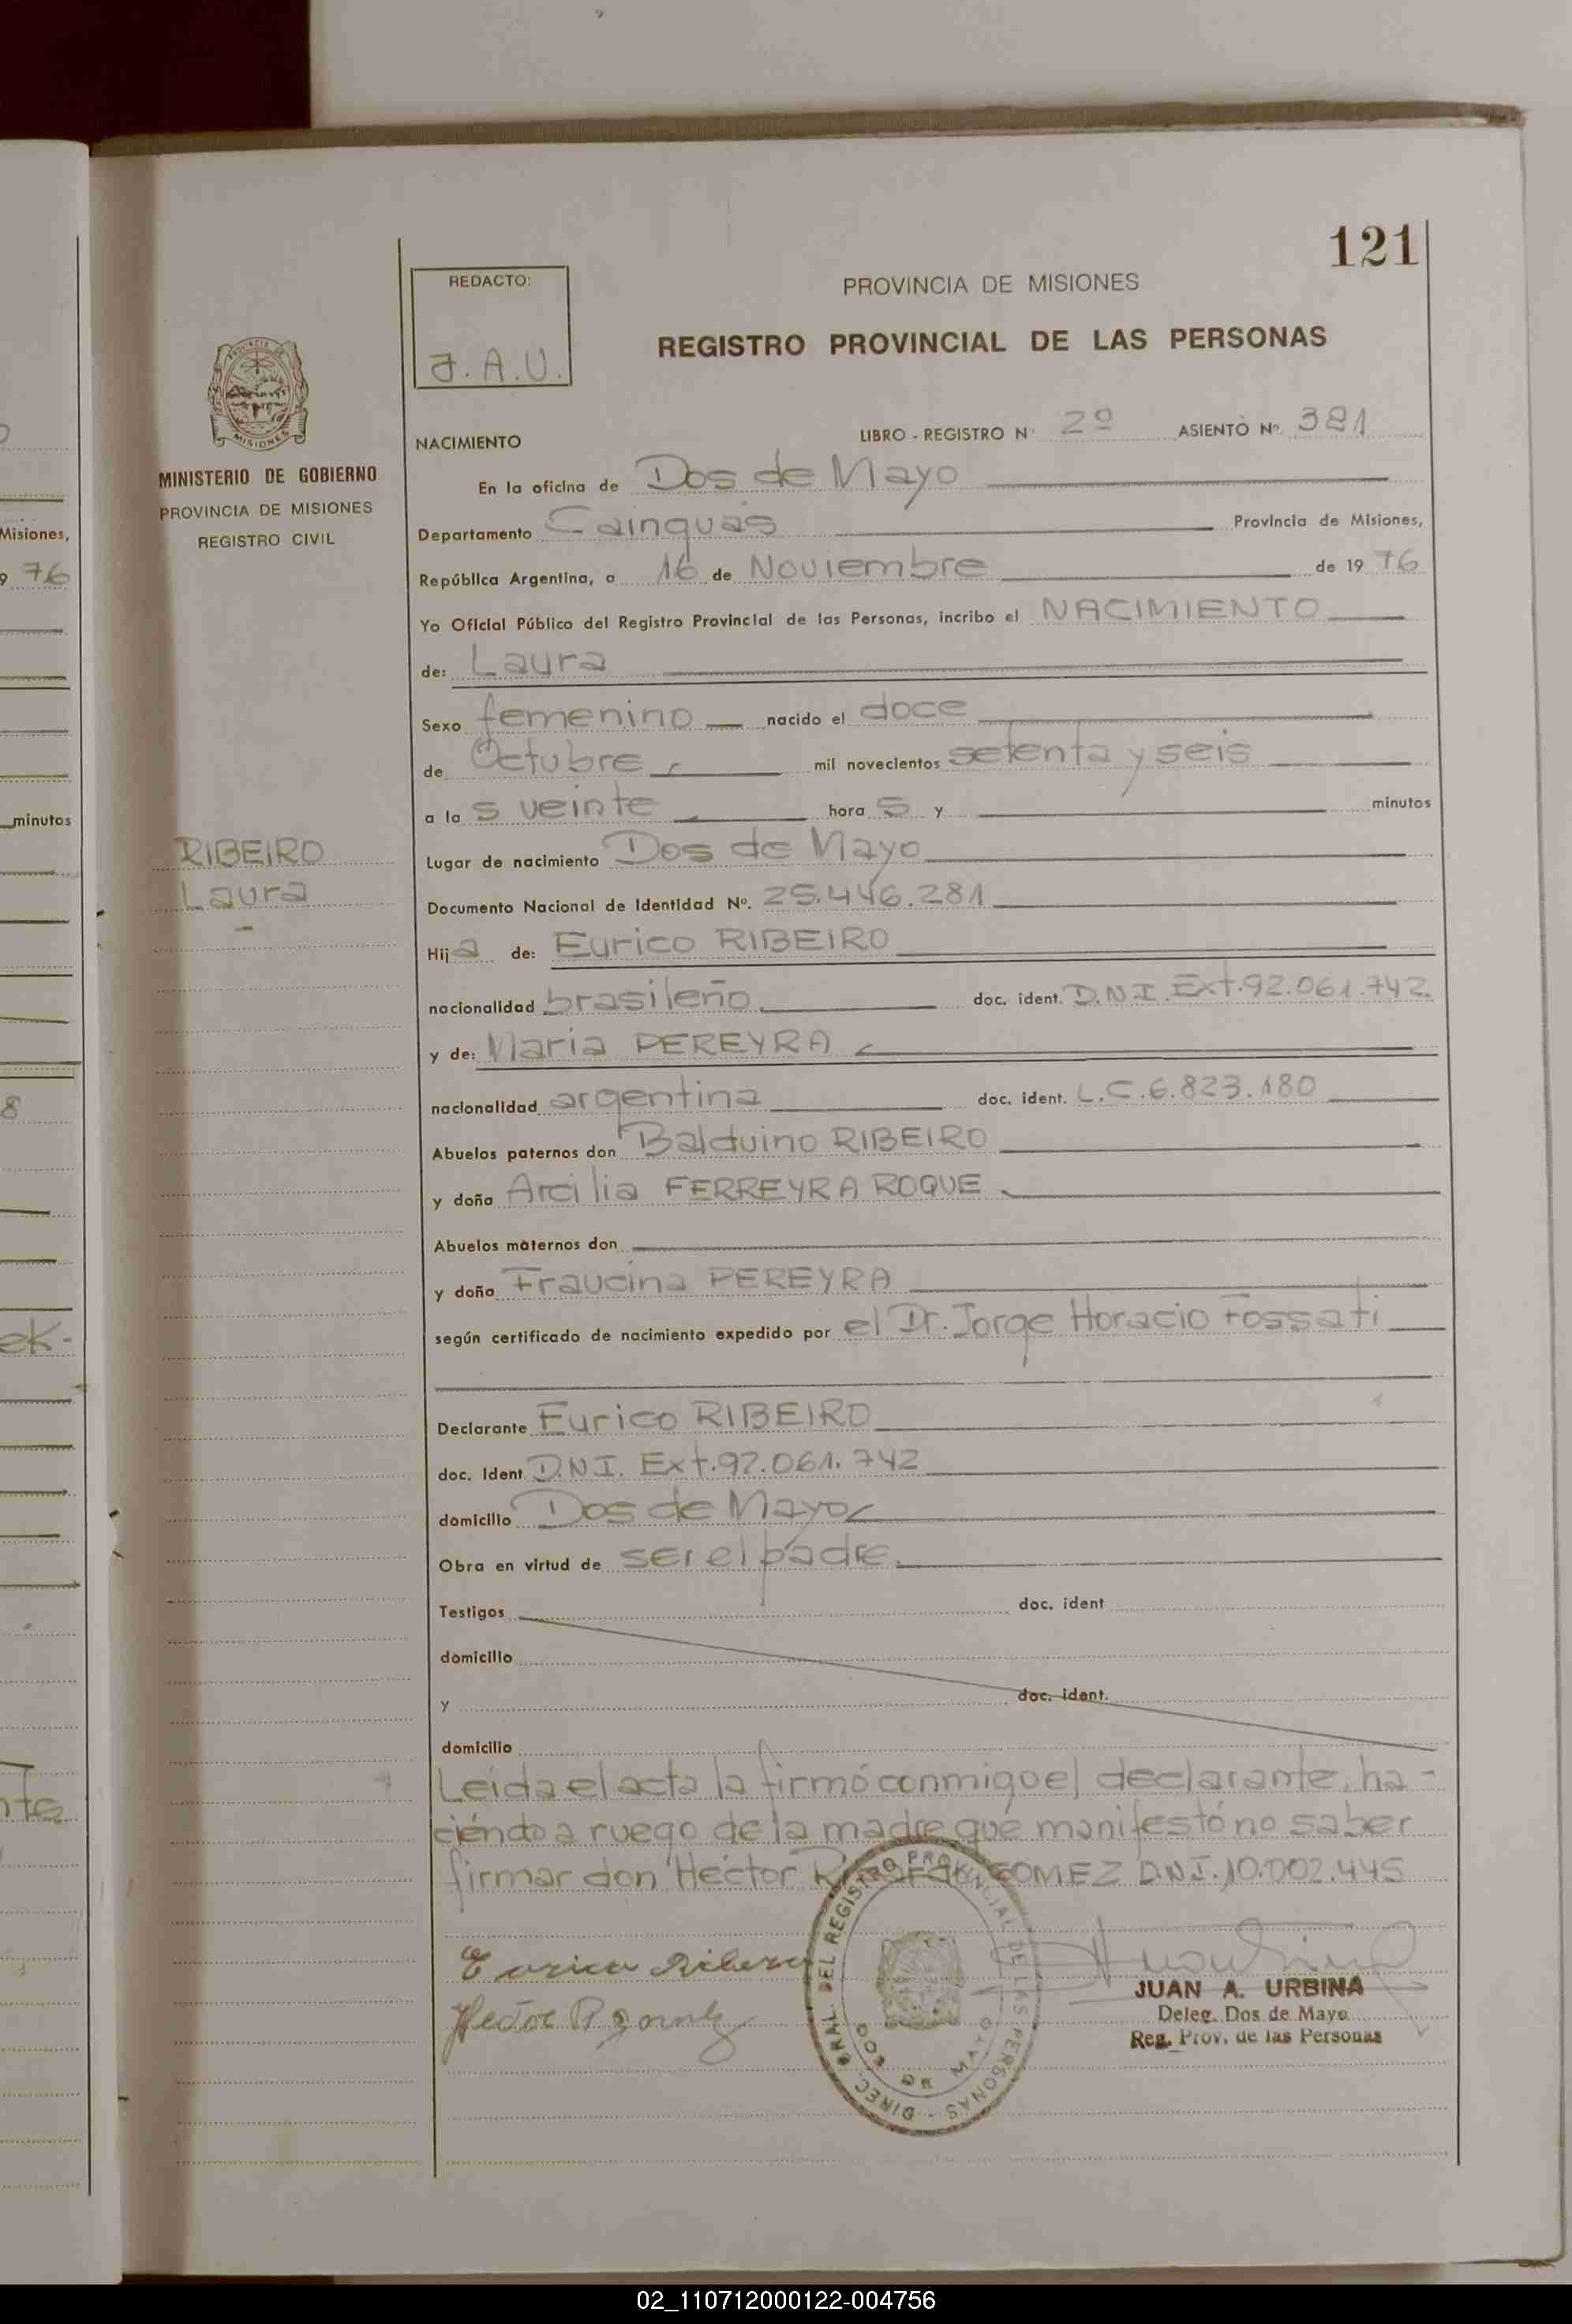 121
REDACTO:
J.A.U.
PROVINCIA DE MISIONES
REGISTRO PROVINCIAL DE LAS PERSONAS
PROVINCIA DE MISIONES
MINISTERIO DE GOBIERNO
PROVINCIA DE MISIONES
REGISTRO CIVIL
NACIMIENTO LIBRO - REGISTRO N° 2º ASIENTO Nº. 381
En la oficina de Dos de Mayo
Departamento Cainguás Provincia de Misiones,
República Argentina, a 16 de Noviembre de 1976
Yo Oficial Público del Registro Provincial de las Personas, incribo el NACIMIENTO
de: Laura
Sexo femenino nacido el doce
de Octubre mil novecientos setenta y seis
a las veinte horas y minutos
RIBEIRO
Laura
Lugar de nacimiento Dos de Mayo
Documento Nacional de Identidad Nº. 25.446.281
Hija de: Eurico RIBEIRO
nacionalidad brasileño doc. ident. D.N.I. Ext.92.061.742
y de: María PEREYRA
nacionalidad argentina doc. ident. L.C.6.823.180
Abuelos paternos don Balduino RIBEIRO
y doña Arcilia FERREYRA ROQUE
Abuelos maternos don
y doña Fraucina PEREYRA
según certificado de nacimiento expedido por el Dr. Jorge Horacio Fossati
Declarante Eurico RIBEIRO
doc. Ident D.N.I. Ext.92.061.742
domicilio Dos de Mayo
Obra en virtud de ser el padre.
Testigos doc. ident
domicilio
y doc. ident.
domicilio
Leída el acta la firmó conmigo el declarante, ha-
ciéndo a ruego de la madre que manifestó no saber
firmar don Héctor GOMEZ D.N.I.10.002.445
DIREC. GRAL. DEL REGISTRO PROVINCIAL DE LAS PERSONAS
DOS DE MAYO
Eurico Ribeiro
Hector R Gomez
JUAN A. URBINA
Deleg. Dos de Mayo
Reg. Prov. de las Personas
Misiones,
9 76
minutos
8
ek-
nte
02_110712000122-004756